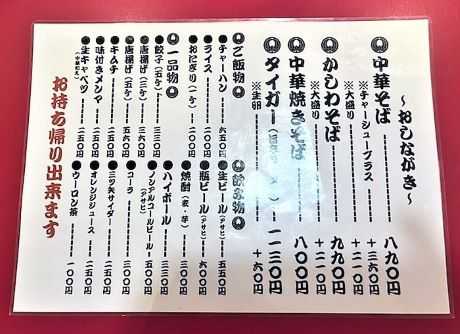 〜おしながき〜
中華そば 八九〇円
※チャーシュープラス ＋三六〇円
※大盛り ＋二一〇円
かしわそば 九九〇円
※大盛り ＋二一〇円
中華焼きそば 八〇〇円
タイガー 一一三〇円
※生卵 ＋六〇円
ご飯物
●チャーハン 六五〇円
●ライス 二〇〇円
●おにぎり（一ケ） 二〇〇円
一品物
●餃子（五ケ） 三三〇円
●唐揚げ（三ケ） 三五〇円
●唐揚げ（五ケ） 五六〇円
●キムチ 二一〇円
●味付きメンマ 二一〇円
●生キャベツ 二五〇円
飲み物
●生ビール（アサヒ） 五五〇円
●瓶ビール（アサヒ） 六五〇円
●焼酎（麦・芋）
●ハイボール
●ノンアルコールビール（アサヒ） 三五〇円
●コーラ 二五〇円
●三ツ矢サイダー 二五〇円
●オレンジジュース 二五〇円
●ウーロン茶 一〇〇円
お持ち帰り出来ます